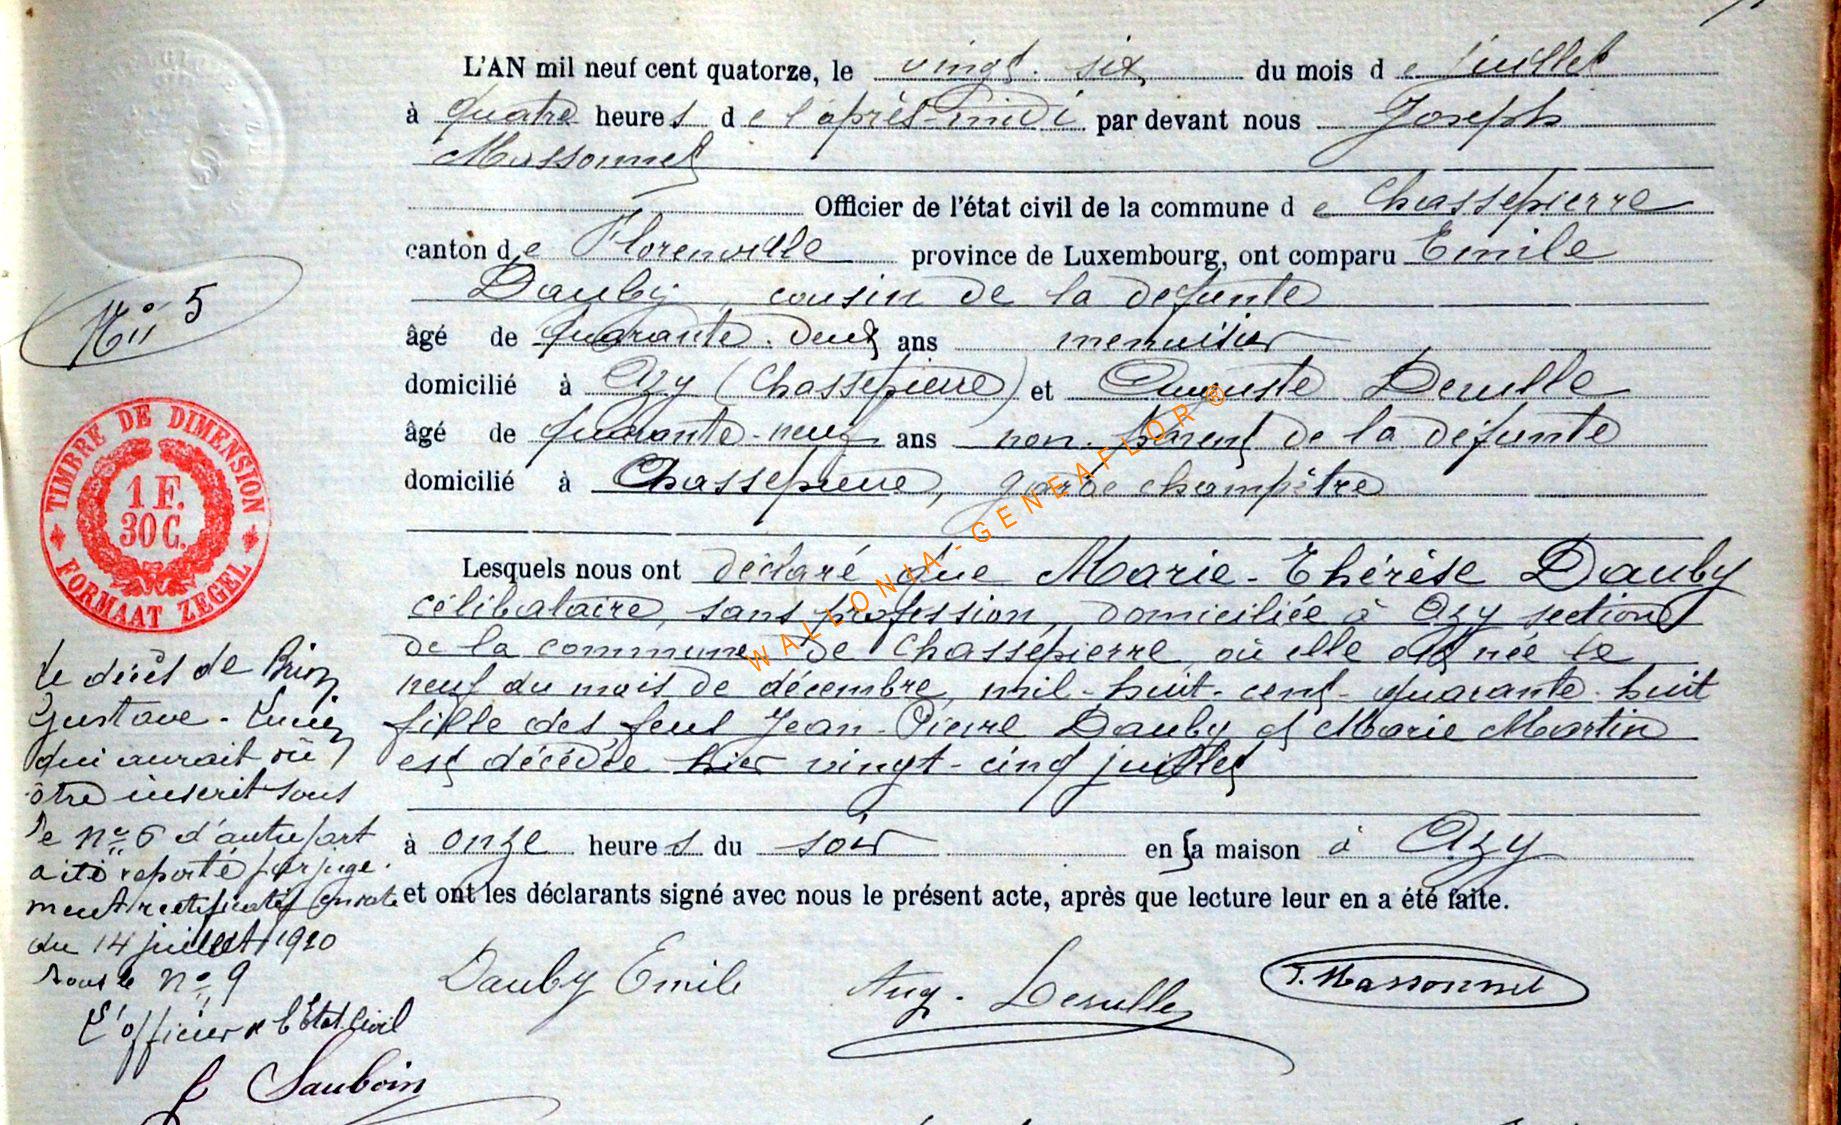 L'AN mil neuf cent quatorze, le vingt-six du mois de Juillet
à quatre heures de l'après-midi par devant nous Joseph
Massonnet
Officier de l'état civil de la commune de Chassepierre
canton de Florenville province de Luxembourg, ont comparu Emile
Dauby, cousin de la défunte
âgé de quarante-deux ans menuisier
domicilié à Azy (Chassepierre) et Auguste Derulle
âgé de quarante-neuf ans non parent de la défunte
domicilié à Chassepierre, garde champêtre
Lesquels nous ont déclaré que Marie-Thérèse Dauby
célibataire, sans profession, domiciliée à Azy section
de la commune de Chassepierre, où elle est née le
neuf du mois de décembre, mil-huit-cent-quarante-huit
fille des feus Jean-Pierre Dauby et Marie Martin
est décédée hier vingt-cinq juillet
à onze heures du soir en sa maison à Azy
et ont les déclarants signé avec nous le présent acte, après que lecture leur en a été faite.
Dauby Emile Aug. Derulle J. Massonnet
N° 5
TIMBRE DE DIMENSION
1 F.
30 C.
FORMAAT ZEGEL
Le décès de
Gustave-Lucien
qui aurait dû
être inscrit sous
le N° 6 d'autre part
a été reporté par juge-
ment rectificatif en date
du 14 juillet 1920
sous le N° 9
L'officier de l'Etat Civil
Sauboin
WALLONIA-GENEAFLOR ®